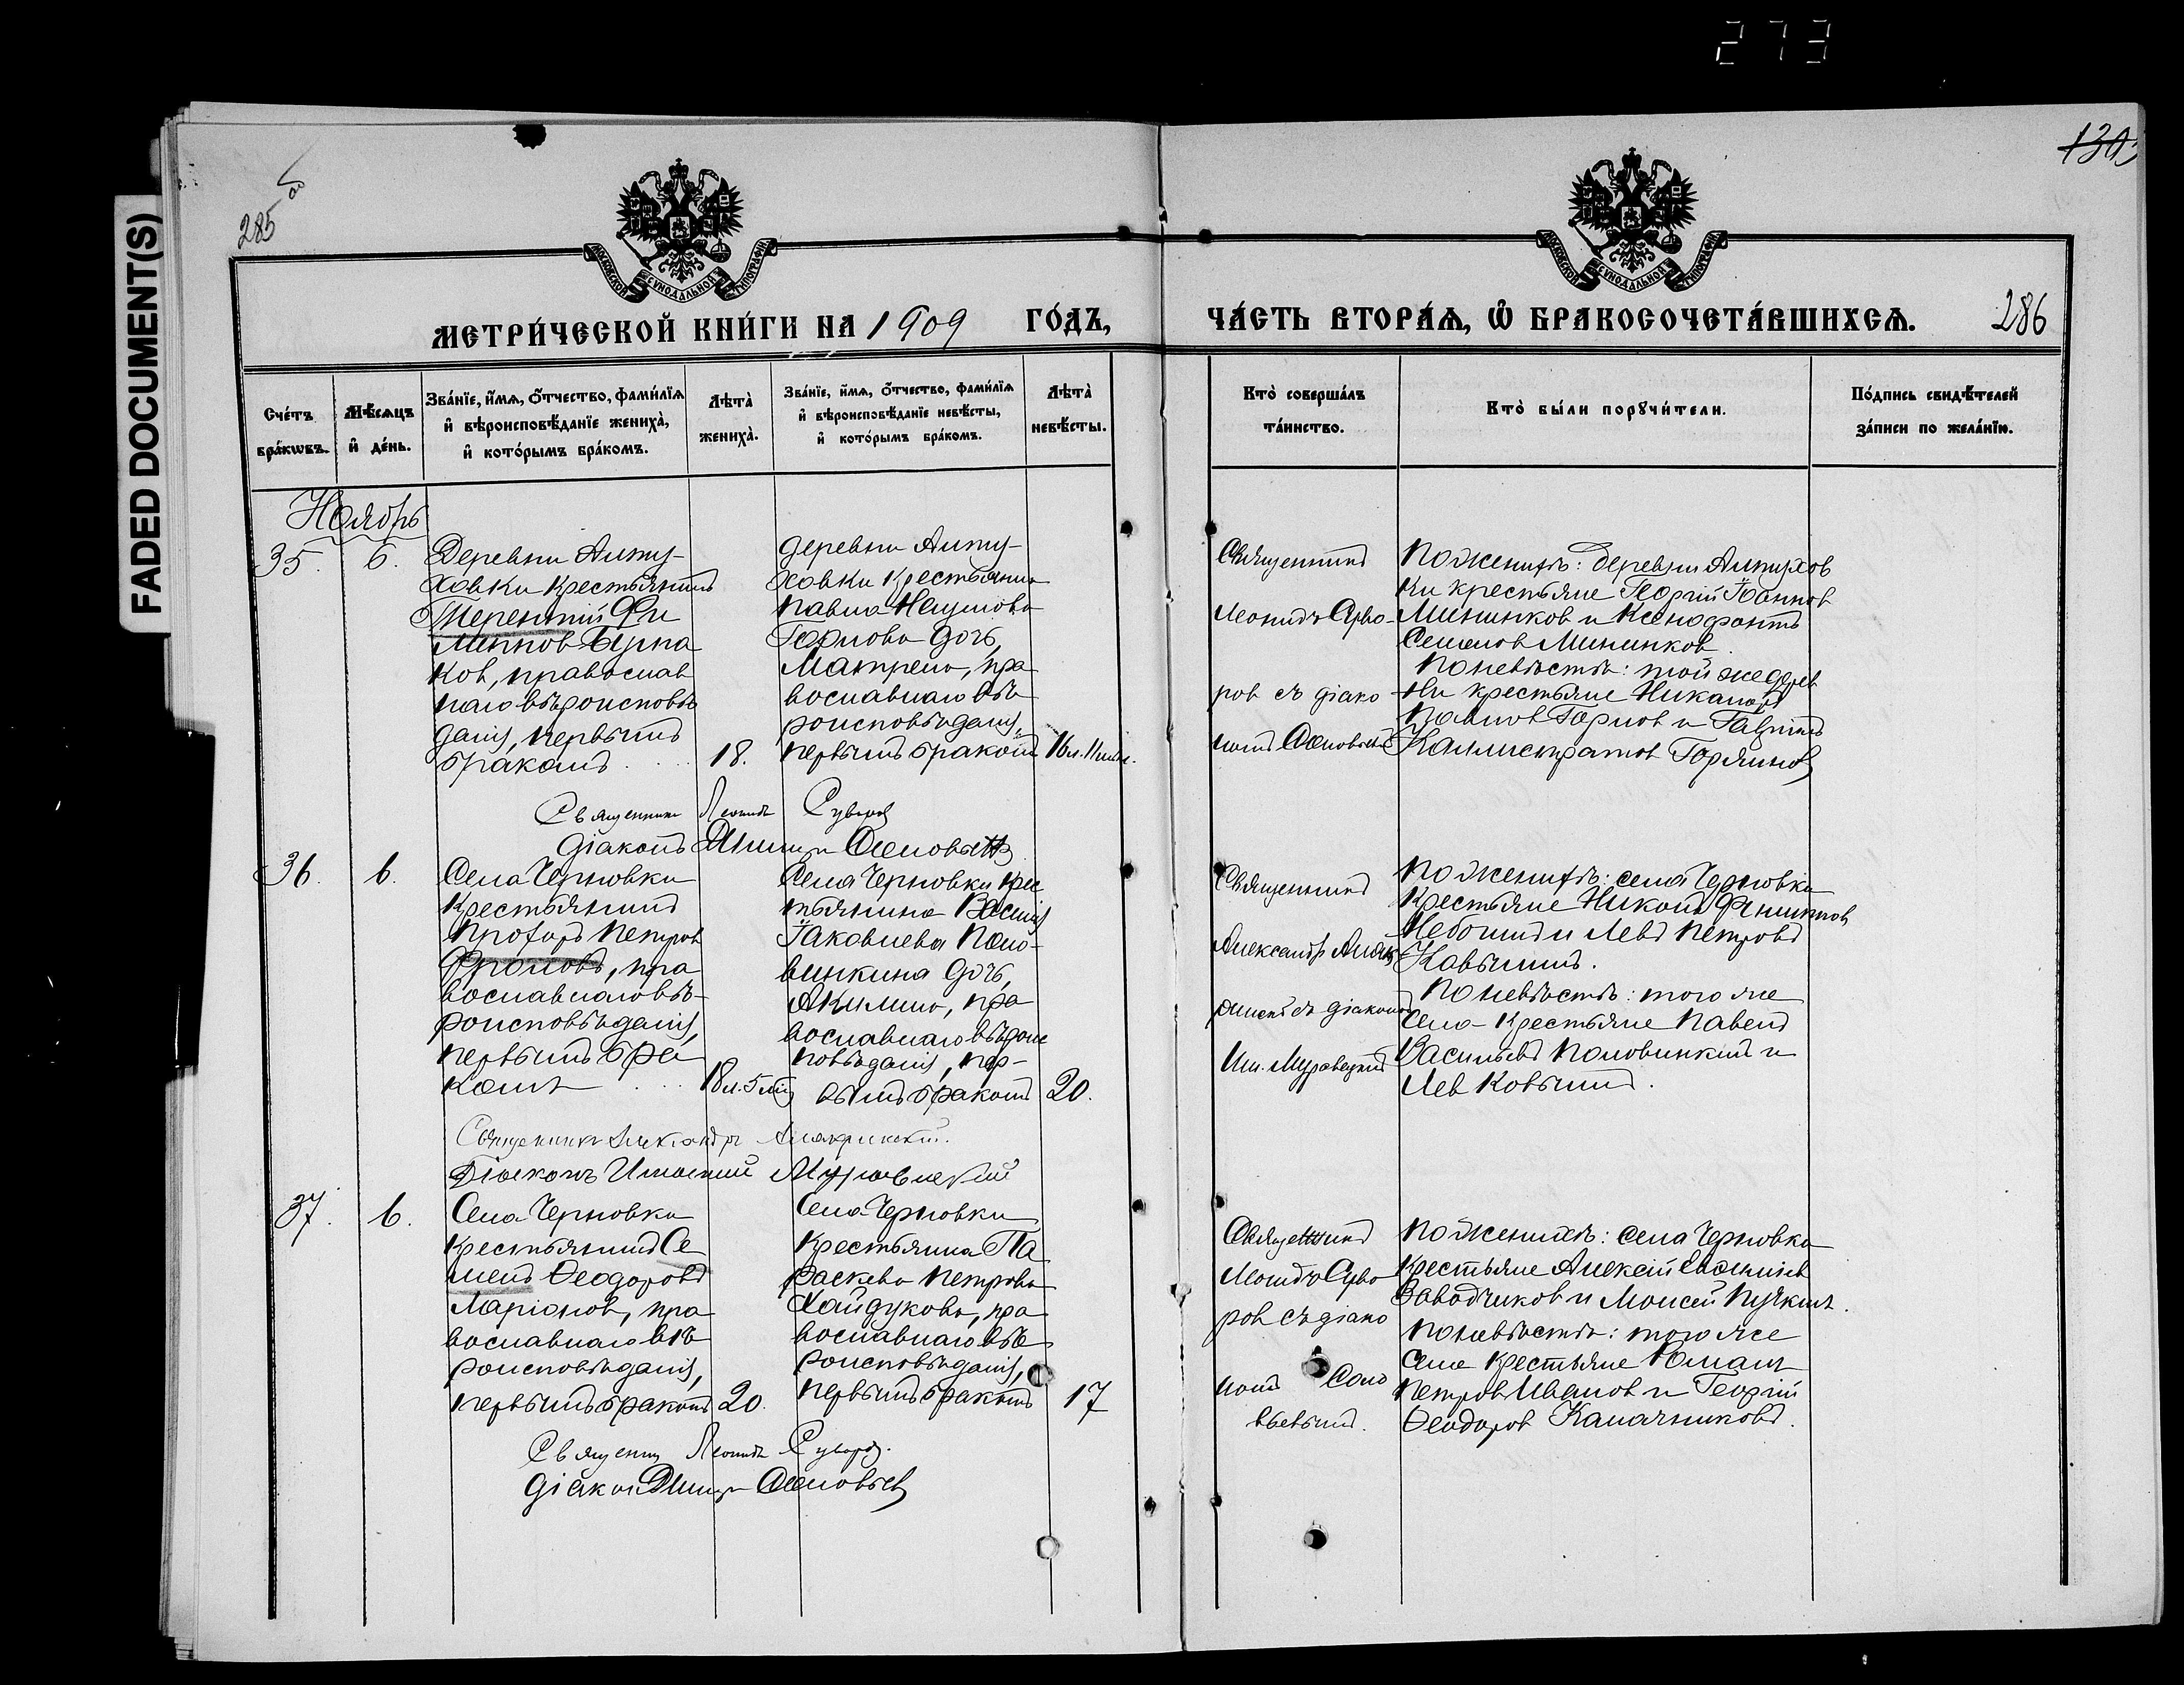 273
FADED DOCUMENT(S)
130
285 об
МОСКОВСКОЙ СУНОДАЛЬНОЙ ТИПОГРАФІИ
МОСКОВСКОЙ СУНОДАЛЬНОЙ ТИПОГРАФІИ
МЕТРИ́ЧЕСКОЙ КНИ́ГИ НА 1909 ГО́ДЪ,
ЧА́СТЬ ВТОРА́Ѧ, Ѡ҆ БРАКОСОЧЕТА́ВШИХСѦ.
286
Сче́тъ бра́кѡвъ.
Мѣ́сѧцъ и҆ де́нь.
Зва́нїе, и҆́мѧ, ѻ҆́тчество, фами́лїѧ
и҆ вѣроисповѣ́данїе жениха̀,
и҆ кото́рымъ бра́комъ.
Лѣта̀ жениха̀.
Зва́нїе, и҆́мѧ, ѻ҆́тчество, фами́лїѧ
и҆ вѣроисповѣ́данїе невѣ́сты,
и҆ кото́рымъ бра́комъ.
Лѣта̀ невѣ́сты.
Кто̀ соверша́лъ та́инство.
Кто̀ бы́ли порꙋчи́тели.
По́дпись свидѣ́телей за́писи по жела́нїю.
Ноябрь
35. 6.
Деревни
ховки крестьянинъ
Терентий Фи
липпов
ков, православ
наго вѣроисповѣ
данія, первымъ
бракомъ 18.
деревни
ховки крестьянина
Павла Наумова
дочь,
Матрена, пра
вославнаго вѣ
роисповѣданія,
первымъ бракомъ 16 л. 11 мѣс.
Священникъ
Леонидъ Суво
ров съ діако
номъ Соловьевымъ
По женихѣ: деревни
ки крестьяне Георгій Іоаннов
Мининков и Ксенофонтъ
Семенов Мининков.
По невѣстѣ: той же дерев
ни крестьяне Никаноръ
Павлов и
Каллистратов
Священникъ Леонидъ Суворовъ
діаконъ Соловьевъ
36. 6.
Села Черновки
крестьянинъ
Прохоръ Петров
Фроловъ, пра
вославнаго вѣ-
роисповѣданія,
первымъ бра
комъ 18 л. 5 мѣс.
Села Черновки крес
тьянина Василія
Іаковлева Поло-
винкина дочь,
Акилина, пра
вославнаго вѣроис
повѣданія, пер-
вымъ бракомъ 20.
Священникъ
Александръ
съ діакономъ
По женихѣ: села Черновки
крестьяне Никонъ Филиппов
и Левъ Петровъ
Ковыминъ.
По невѣстѣ: того же
села крестьяне Павелъ
Васильевъ Половинкинъ и
Лев Ковыминъ.
Священникъ Александръ
Діаконъ
37. 6.
Села Черновки
крестьянинъ Се
менъ Ѳеодоровъ
Ларіонов, пра
вославнаго вѣ
роисповѣданія,
первымъ бракомъ 20.
Села Черновки
крестьянка Па
раскева Петрова
Хайдукова, пра
вославнаго вѣ
роисповѣданія,
первымъ бракомъ 17
Священникъ
Леонидъ Суво
ров съ діако
номъ Соло
вьевымъ.
По женихѣ: села Черновки
крестьяне Алексѣй
Заводчиков и Моисей Пучкинъ.
По невѣстѣ: того же
села крестьяне Романъ
Петров Иванов и Георгій
Ѳеодоров Калачниковъ.
Священникъ Леонидъ Суворовъ.
діакон Соловьевъ